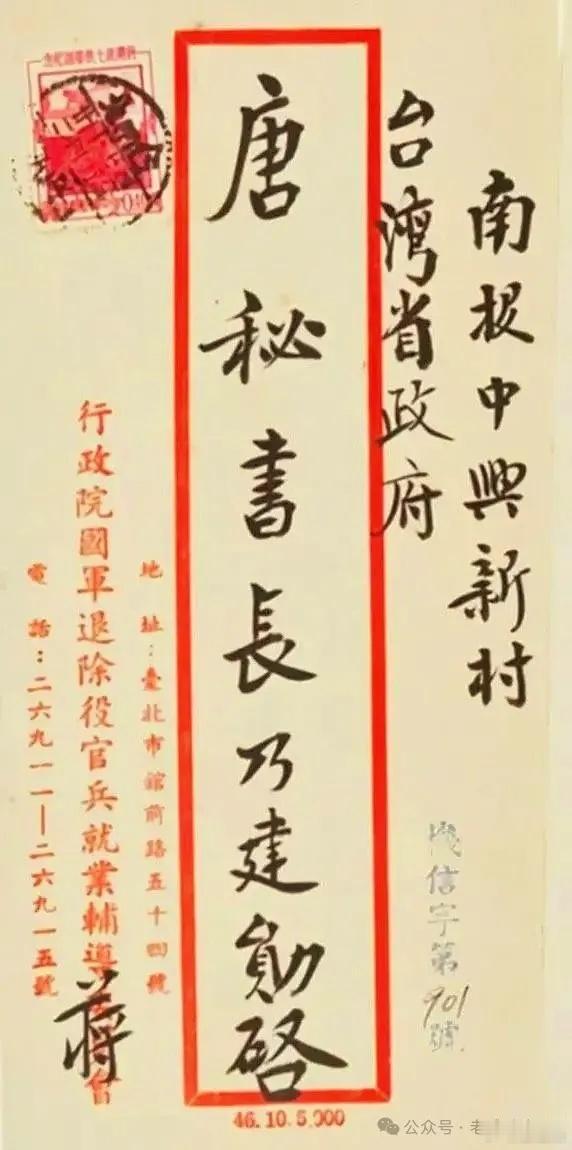 南投中興新村
台灣省政府
機信字第901號
唐秘書長乃建勛啓
地址：臺北市館前路五十四號
行政院國軍退除役官兵就業輔導會
蔣
電話：二六九一一—二六九一五號
46.10.5,000
公众号·老